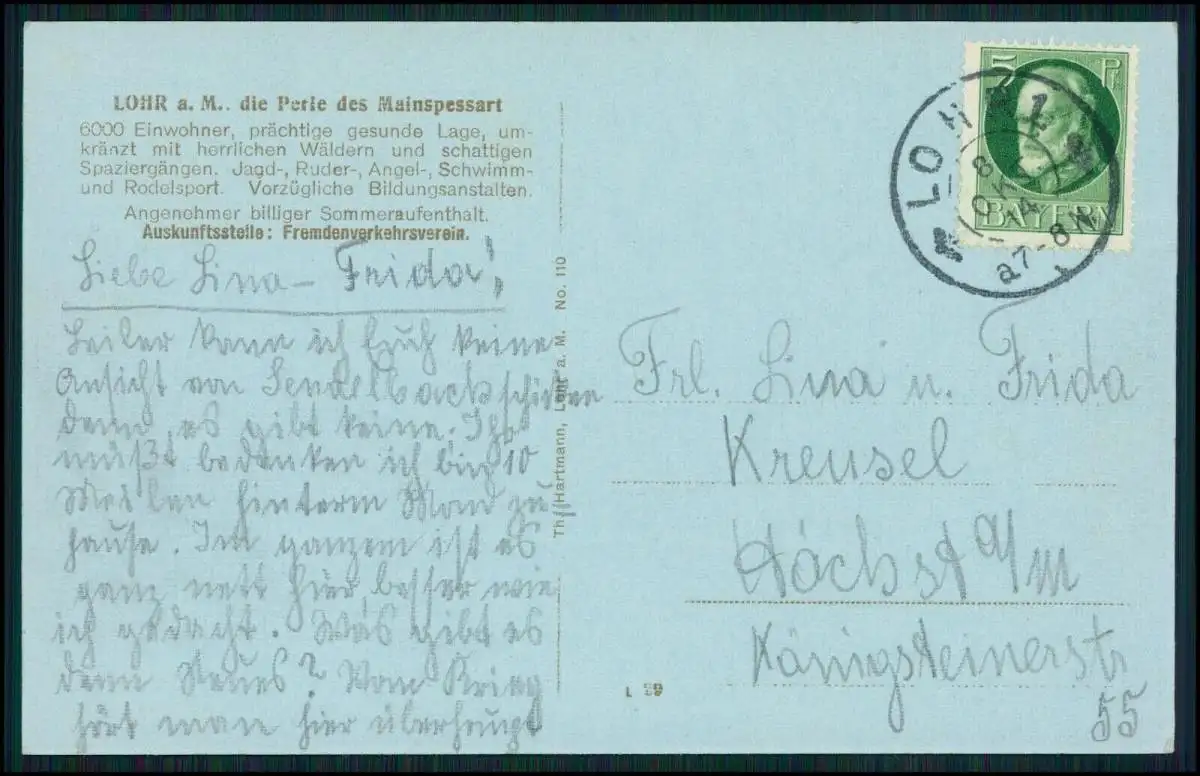 LOHR a. M.. die Perle des Mainspessart
6000 Einwohner, prächtige gesunde Lage, um-
kränzt mit herrlichen Wäldern und schattigen
Spaziergängen. Jagd-, Ruder-, Angel-, Schwimm-
und Rodelsport. Vorzügliche Bildungsanstalten.
Angenehmer billiger Sommeraufenthalt.
Auskunftsstelle: Fremdenverkehrsverein.
Liebe Lina – Frida!
Leider kann ich Euch keine
Ansicht von Sendelbach schicken
denn es gibt keine. Ihr
müßt bedenken ich bin 10
Meilen hinterm Mond zu
hause. Im ganzen ist es
ganz nett hier, besser wie
ich gedacht. Was gibt es
denn Neues? Vom Krieg
hört man hier überhaupt
Th. Hartmann, Lohr a. M. No. 110
5 Pf.
BAYERN
LOHR
8
OKT
14
7-8 N
Frl. Lina u. Frida
Kreusel
Höchst a/M
Königsteinerstr
55
L 39